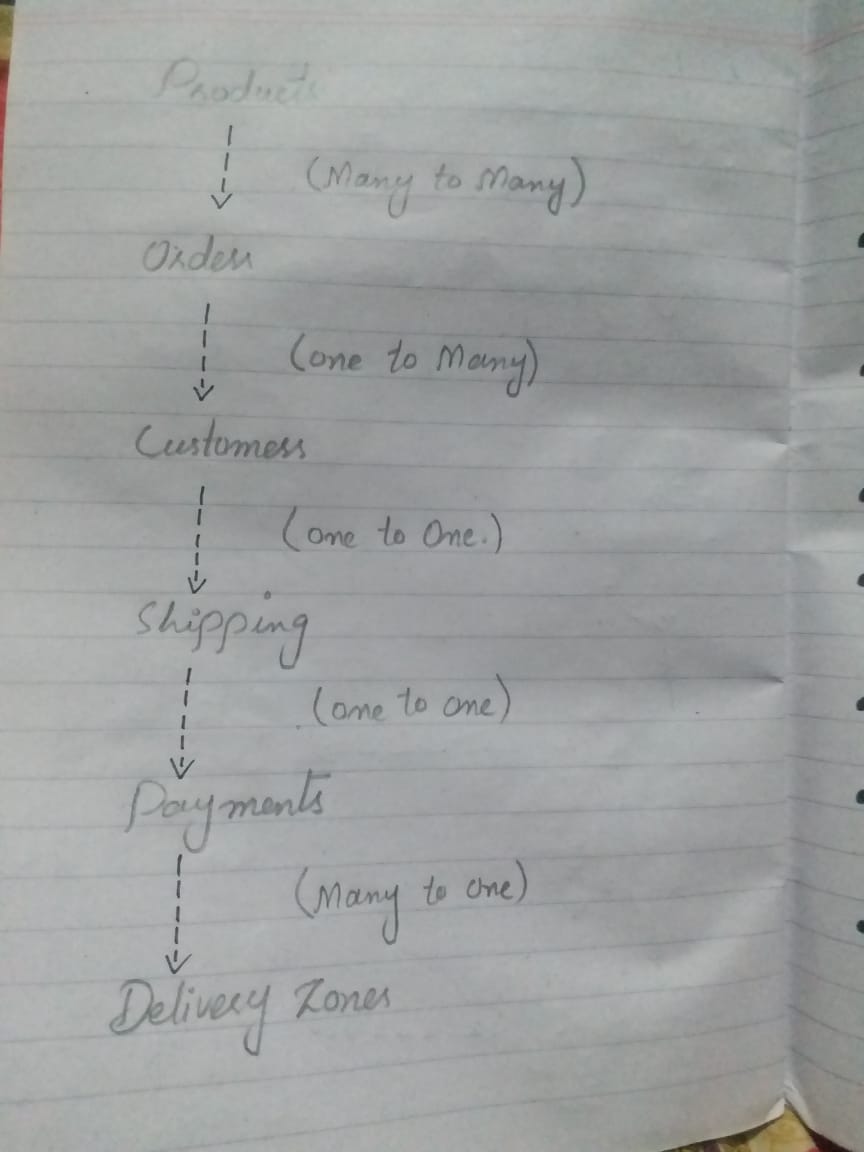 Products
(Many to Many)
Orders
(one to Many)
Customers
(one to One.)
Shipping
(one to one)
Payments
(Many to one)
Delivery Zones